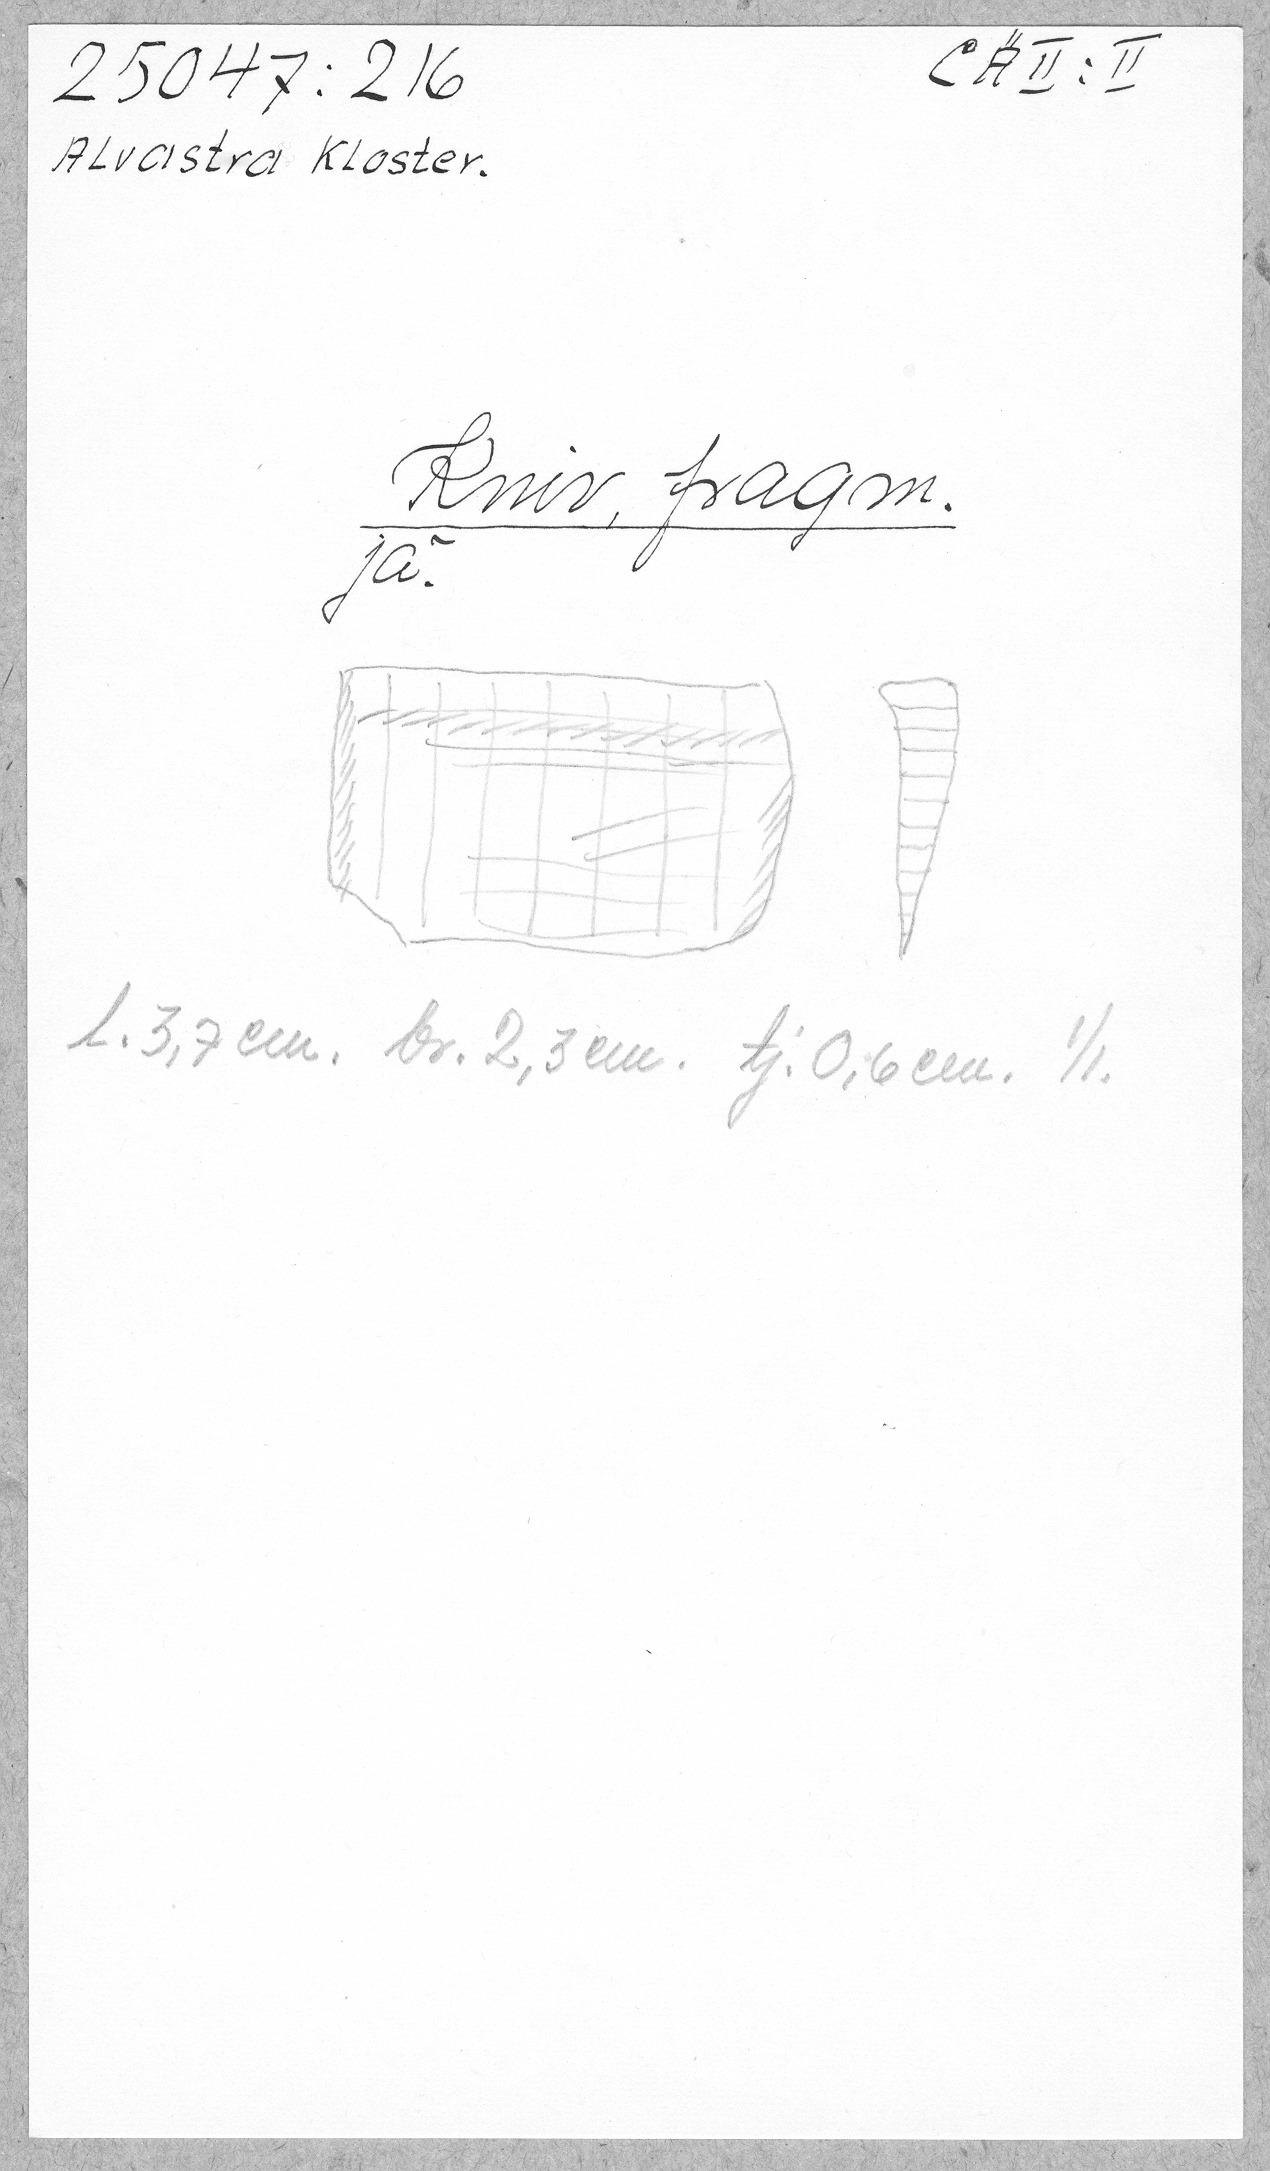 25047:216
CÄII:II
Alvastra Kloster.
Kniv, fragm.
jä.
l. 3,7 cm. br. 2,3 cm. tj. 0,6 cm. 1/1.